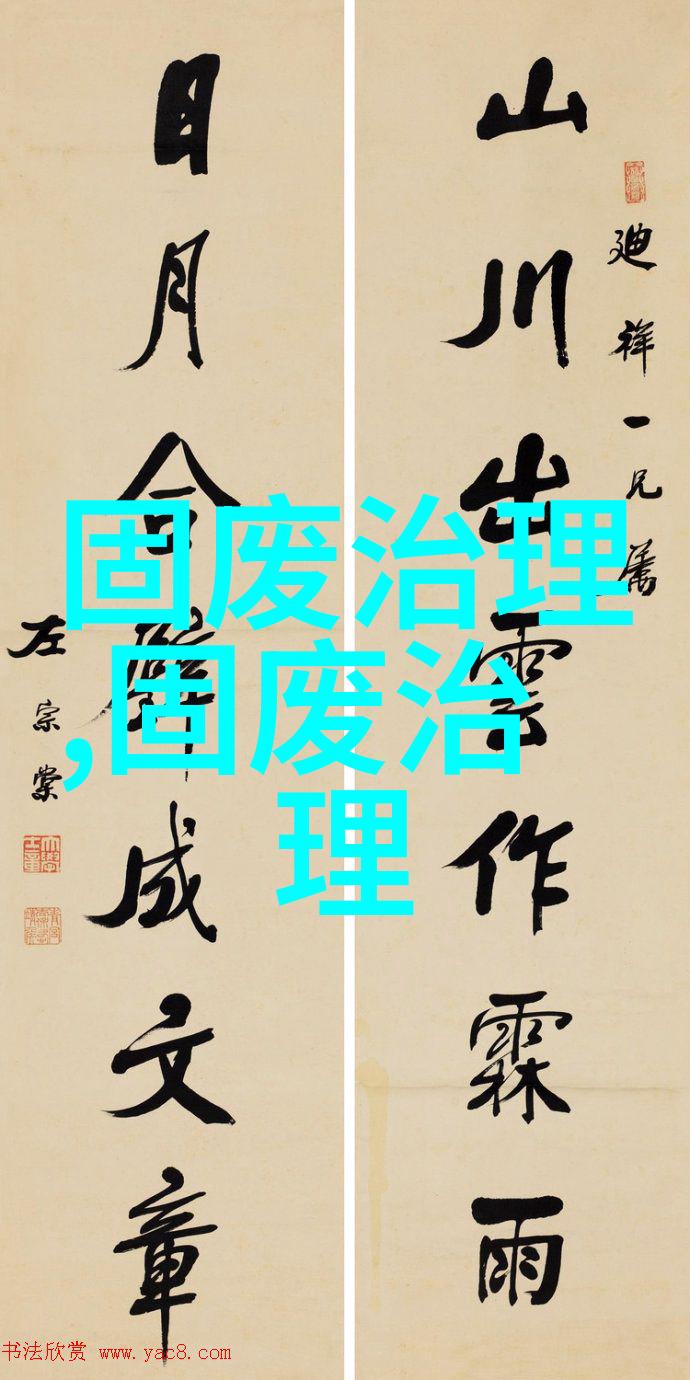 山川出雲作霖雨
廸祥一兄屬
日月合璧成文章
左宗棠
固废治理
,固废治
理
书法欣赏 www.yac8.com